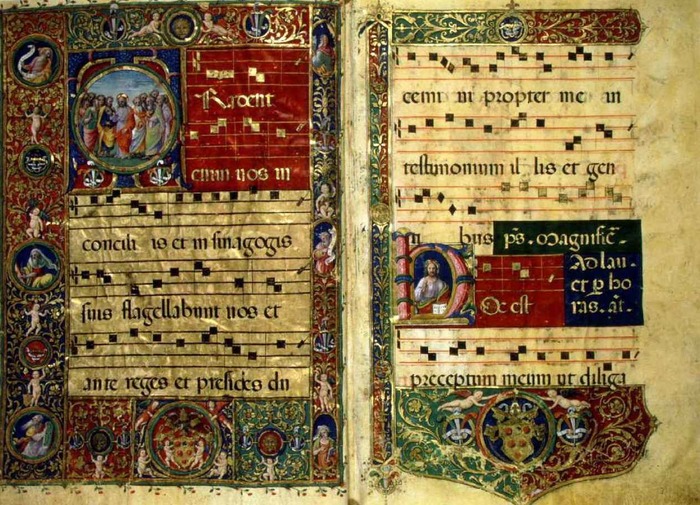 radent
enim uos in
concili is et in sinagogis
suis flagellabunt uos et
ante reges et presides du
cemi ni propter me in
testimonium il lis et gen
bus ps. Magnific̄.
Ad lau.
et p̱ ho
Oc est ras. āt.
preceptum meum ut diliga